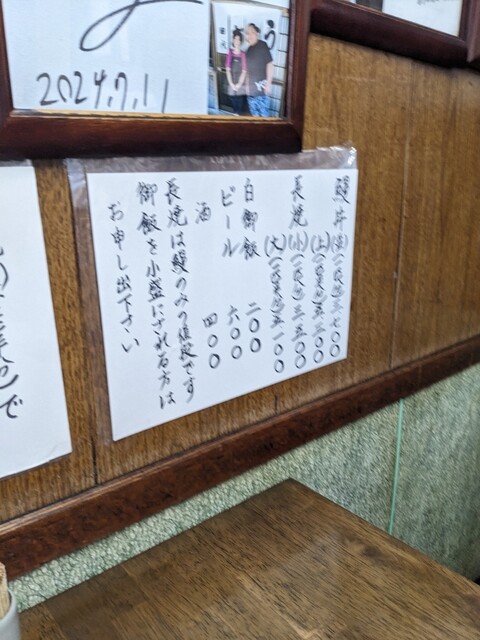 2024.7.11
鰻丼 三七〇〇
(上) 五三〇〇
長焼(小) 三五〇〇
(大) 五一〇〇
白御飯 二〇〇
ビール 六〇〇
酒 四〇〇
長焼は鰻のみの値段です
御飯を小盛にされる方は
お申し出下さい